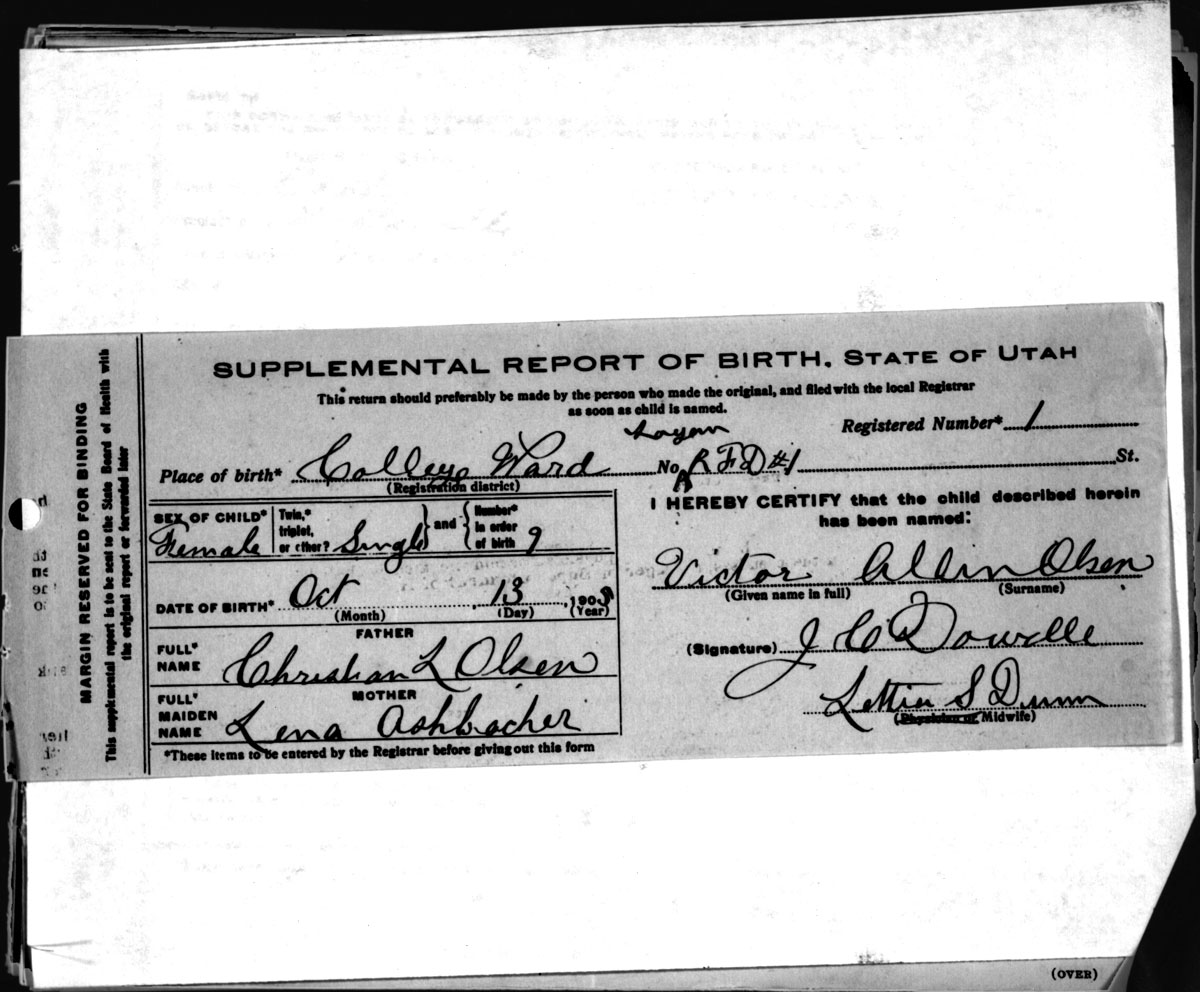 SUPPLEMENTAL REPORT OF BIRTH. STATE OF UTAH
This return should preferably be made by the person who made the original, and filed with the local Registrar
as soon as child is named.
Registered Number* 1
Logan
Place of birth* College Ward No. RFD #1 St.
(Registration district)
SEX OF CHILD* Female
Twin,* triplet, or other? Single
and
Number* in order of birth 9
DATE OF BIRTH* Oct 13, 190
(Month) (Day) (Year)
FATHER
FULL* NAME Christian L Olsen
MOTHER
FULL* MAIDEN NAME Lena Ashbacher
*These items to be entered by the Registrar before giving out this form
I HEREBY CERTIFY that the child described herein
has been named:
Victor Allin Olsen
(Given name in full) (Surname)
(Signature) J C
Lettia S Dunn
(Physician or Midwife)
MARGIN RESERVED FOR BINDING
This supplemental report is to be sent to the State Board of Health with
the original report or forwarded later
(OVER)